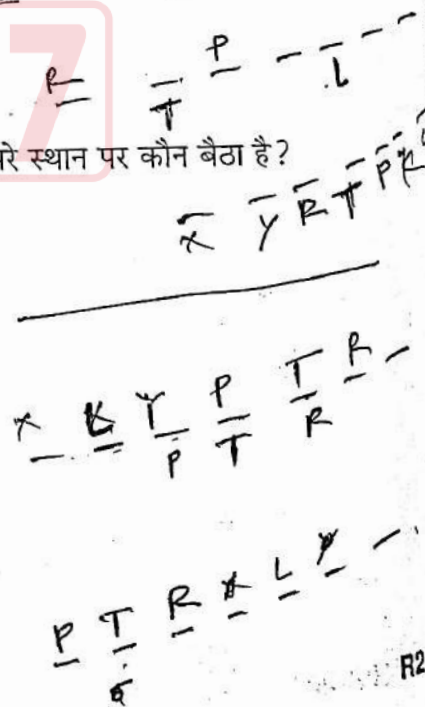 7
P
P
T
L
रे स्थान पर कौन बैठा है?
X Y R T P
X K Y P T R
P T R
P T R X L
R2